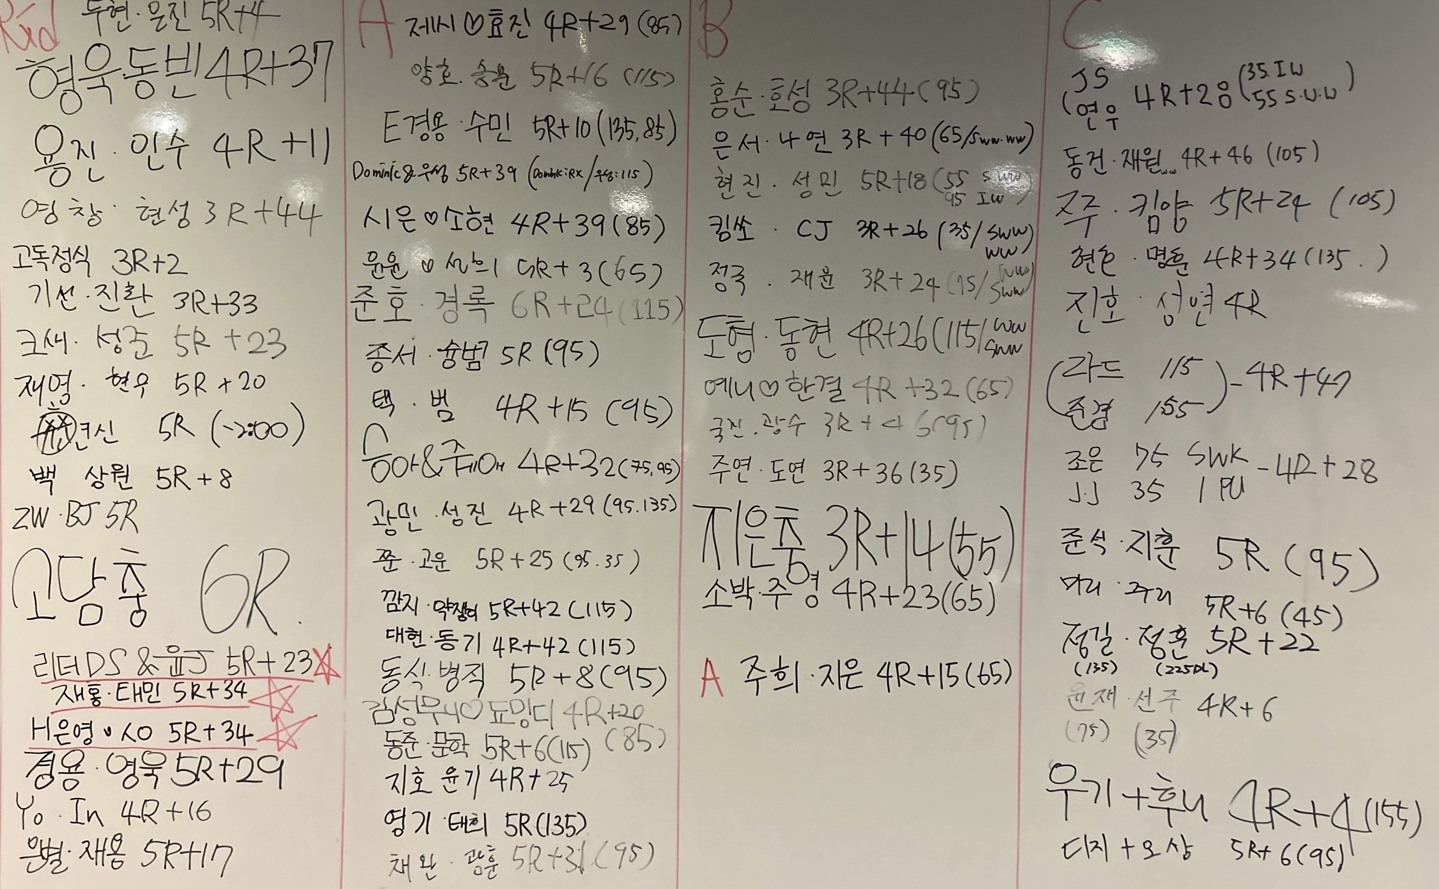 Rxd
두현·은진 5R+4
형욱·동빈 4R+37
용진·인수 4R+11
영창·현성 3R+44
고독정식 3R+2
기선·진환 3R+33
크새·성준 5R+23
재영·현우 5R+20
연신 5R (~2:00)
백 상원 5R+8
ZW·BJ 5R
고담충 6R.
리더DS&윤J 5R+23
재홍·태민 5R+34
H은영·SO 5R+34
경용·영욱 5R+29
Yo·In 4R+16
은별·재용 5R+17
A
제시♡효진 4R+29(85)
양호·승윤 5R+16 (115)
E경용·수민 5R+10(135,85)
Dominic&우성 5R+39 (Dominic:RX/우성:115)
시은♡소현 4R+39(85)
윤윤♡ 5R+3(65)
준호·경록 6R+24(115)
종서·슝범 5R (95)
택·범 4R+15 (95)
승아&쥬데이애 4R+32(75,95)
광민·성진 4R+29(95.135)
쭌·고운 5R+25(95.35)
깜지· 5R+42(115)
대현·동기 4R+42(115)
동식·병직 5R+8(95)
김성무니♡묘밍디 4R+20 (85)
동준·문학 5R+6(115)
지호 윤기 4R+25
영기·태희 5R(135)
채완·광훈 5R+31(95)
B
홍순·효성 3R+44(95)
은서·나연 3R+40(65/SWW·WW)
현진·성민 5R+18(55 S.WW
95 IW)
킹쏘·CJ 3R+26 (35/SWW
WW)
정국·재윤 3R+24(75/SWW
SWW
도협·동현 4R+26(115/WW
SWW
예니♡한결 4R+32(65)
국진·광수 3R+46(95)
주연·도연 3R+36(35)
지은충 3R+14(55)
소박·주영 4R+23(65)
A 주희·지은 4R+15(65)
C
JS
(연우 4R+28(35.IW
55 S.U.W)
동건·재원 4R+46 (105)
주주·킴양 5R+24 (105)
현호·명훈 4R+34(135.)
진호·성연 4R
(라드 115
준겸 155)-4R+47
조은 75 SWK
J.J 35 1PU -4R+28
준식·지훈 5R (95)
머리·주리 5R+6(45)
정길·정훈 5R+22
(135) (225DL)
윤재·선주 4R+6
(75) (35)
우기+후니 4R+4(155)
디지+오상 5R+6(95)